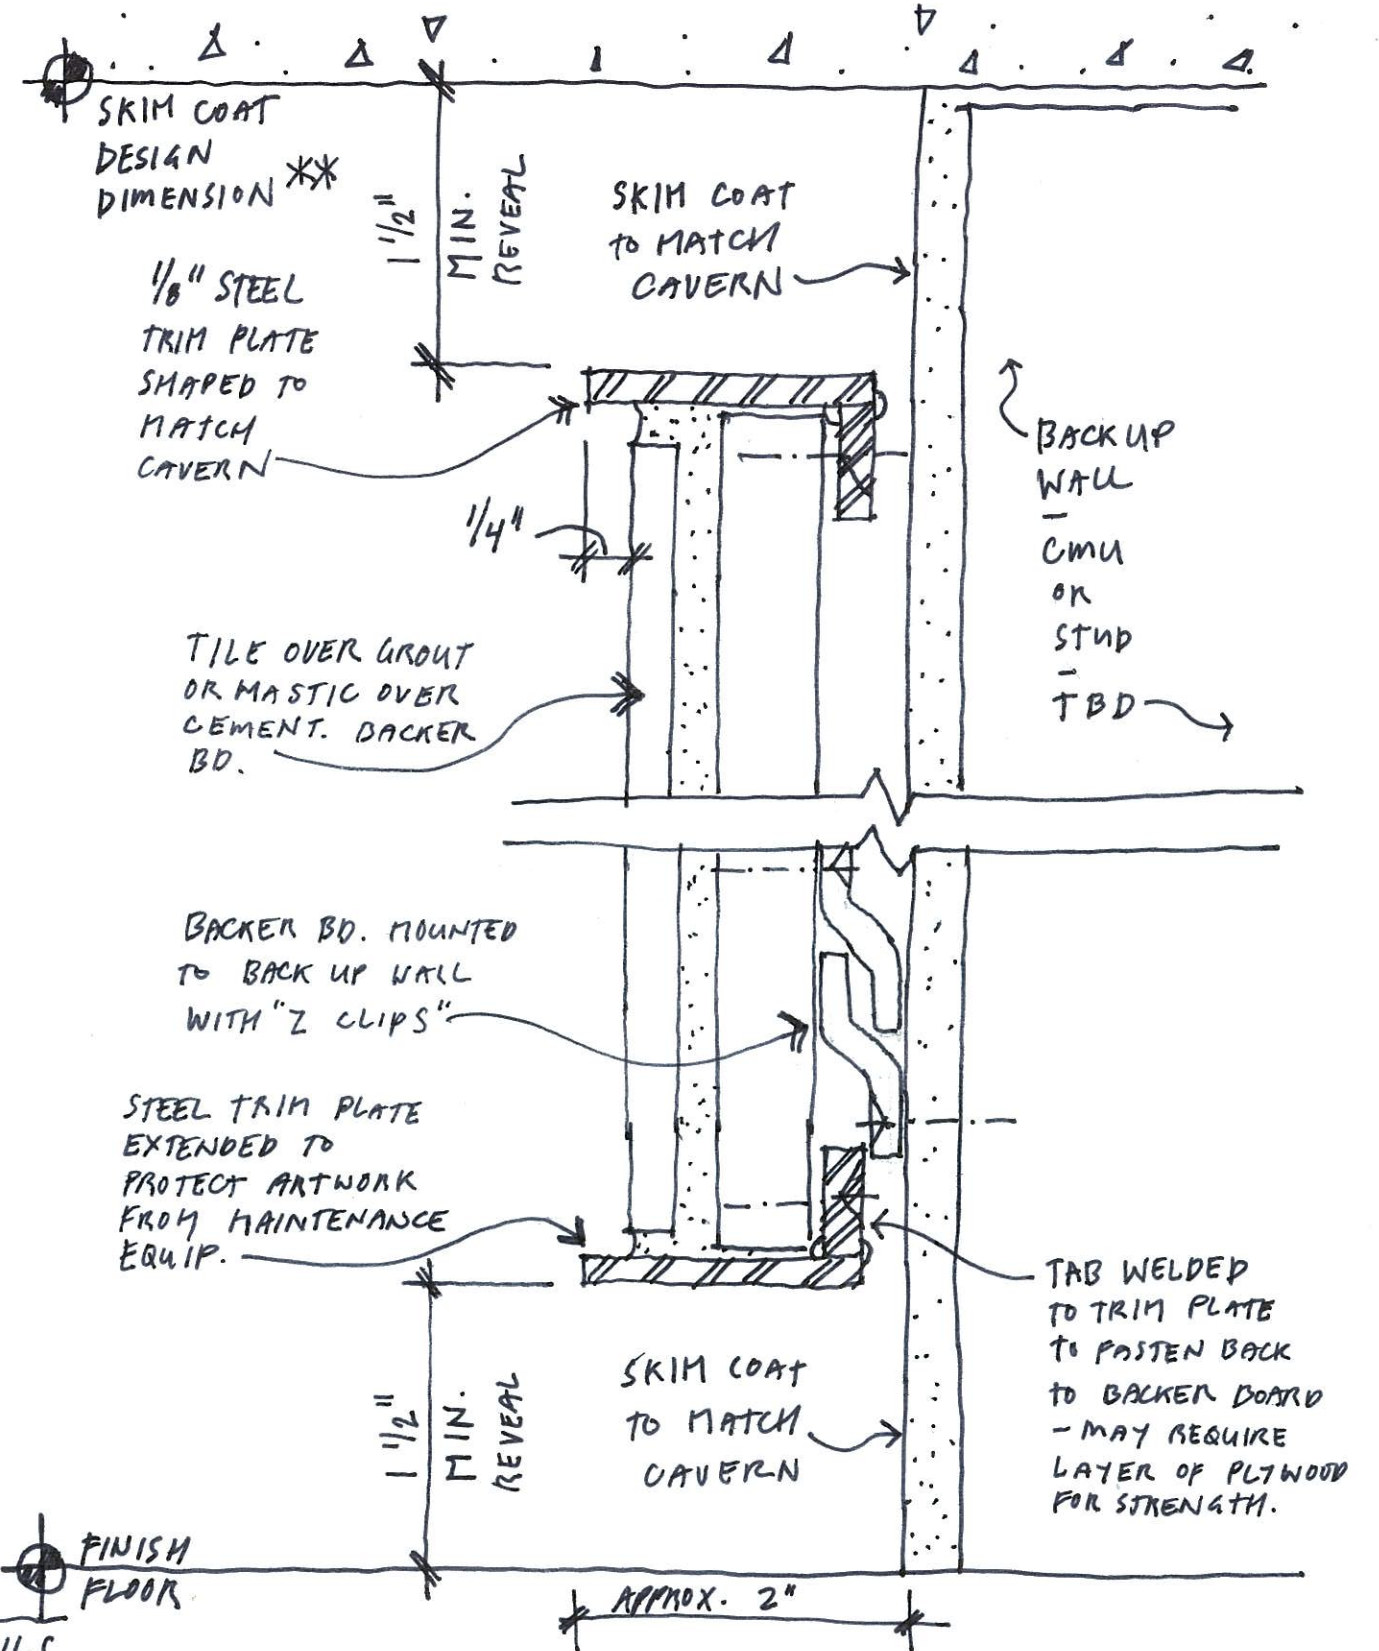 SKIM COAT
DESIGN
DIMENSION **
1 1/2"
MIN.
REVEAL
SKIM COAT
TO MATCH
CAVERN
1/8" STEEL
TRIM PLATE
SHAPED TO
MATCH
CAVERN
BACK UP
WALL
-
CMU
OR
STUD
-
TBD
1/4"
TILE OVER GROUT
OR MASTIC OVER
CEMENT. BACKER
BD.
BACKER BD. MOUNTED
TO BACK UP WALL
WITH "Z CLIPS"
STEEL TRIM PLATE
EXTENDED TO
PROTECT ARTWORK
FROM MAINTENANCE
EQUIP.
TAB WELDED
TO TRIM PLATE
TO FASTEN BACK
TO BACKER BOARD
- MAY REQUIRE
LAYER OF PLYWOOD
FOR STRENGTH.
1 1/2"
MIN.
REVEAL
SKIM COAT
TO MATCH
CAVERN
FINISH
FLOOR
APPROX. 2"